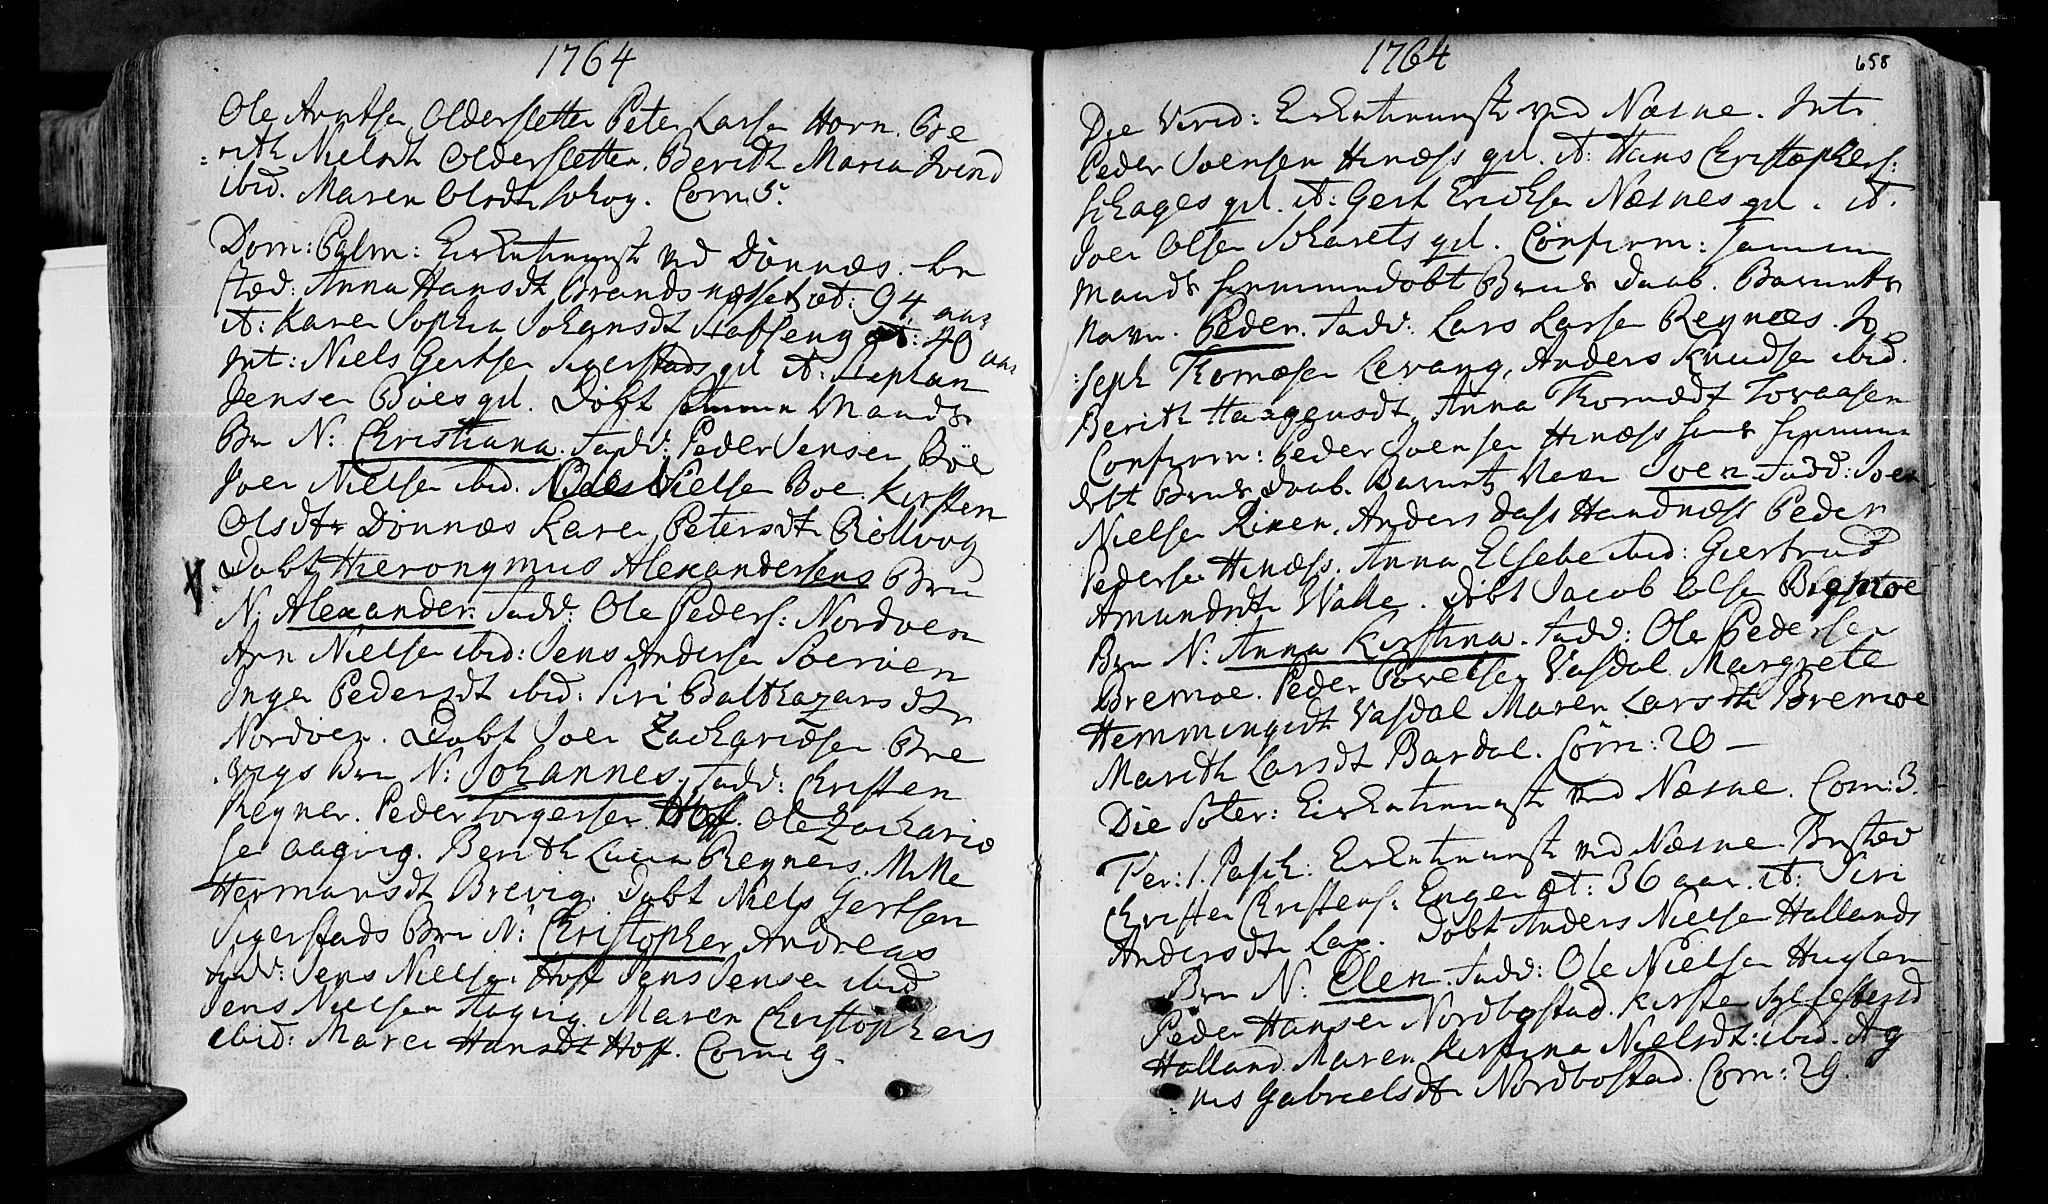 1764
Ole Arntsen Olderfletten Peter Larsen Horn. Be
rith Nielsdtr Olderfletten. Berith Maria Svend
ibid. Maren Olsdtr Schog. Com: 5.
Dom: Palm: Eiusdemmest ved Dönnæs. be
sted: Anna Hansdt Brandsnæsset æt: 94 aar
it: Karen Sophia Johansdt Staffseng æt: 40 aar
Int: Niels Gertsen Sigerstads qvl it: Stephan
Jensen Böes qvl. Döbt samme Mands
Brn N: Christiana. Fadd: Peder Jensen Böe
Joen Nielsen ibid. Niels Nielsen Böe. Kirsten
Olsdtr Dönnæs Karen Petersdt Röllvog
Döbt Hieronymus Alexandersens Brn
N: Alexander. Fadd: Ole Peders: Nordöen
Arn Nielsen ibid: Jens Andersen Söeröen
Inger Pedersdt ibid: Siri Balthazarsdtr
Nordöen. Döbt Joen Zachariæsen Bre
vigs Brn N: Johannes. Fadd: Christen
Regner. Peder Torgersen Hoff. Ole Zacharie
sen Aagvig. Berith Lucia Regners. Mille
Hermansdt Brevig. Döbt Niels Gertsen
Sigerstads Brn N: Christopher Andreas
Fadd: Jens Nielsen Hoff Jens Jensen ibid
Jens Nielsen Hagvig. Maren Christophers
ibid: Maren Hansdt Hoff. Com: 9.
1764
658
Die Virid: ved Næsne. Intr
Peder Joensen Hinæss qvl. it: Hans Christophers:
Schages qvl. it: Gert Erichsen Næsnes qvl. it.
Joen Olsen Scharets qvl. Confirm: samme
Mands hiemmedöbt Barns Daab. Barnets
Navn. Peder. Fadd: Lars Larsen Regnæs. Jo
seph Thomæsen Levang, Anders Knudsen ibid.
Berith Haagensdt, Anna Thomædt Tovaasen
Confirm: Peder Joensen Hinæss hans hiemme
döbt Barns Daab. Barnetz Navn Joen Fadd: Joen
Nielsen Rinen. Anders Dass Handnæss Peder
Pedersen Hinæss. Anna Elsebe ibid: Giertrud
Amundsdtr Walle. Döbt Jacob Olsen Bremoe
Brn N: Anna Kirstina. Fadd: Ole Pedersen
Bremoe. Peder Povelsen Vasdal Margrete
Hemmingsdt Vasdal Maren Larsdtr Bremoe
Marith Larsdt Bardal. Com: 20 —
Die Soter: ved Næsne. Com: 3.
Fer: 1. Pasch: ved Næsne. Bested
Christen Christens: Enger æt: 36 aar. it: Siri
Andersdtr Lax. Döbt Anders Nielsen Hallands
Brn N: Elen. Fadd: Ole Nielsen Huglen
Peder Hansen Nordbostad. Kirsten
Halland. Maren Kirstina Nielsdt: ibid. Ag
nes Gabrielsdtr Nordbostad. Com: 29.